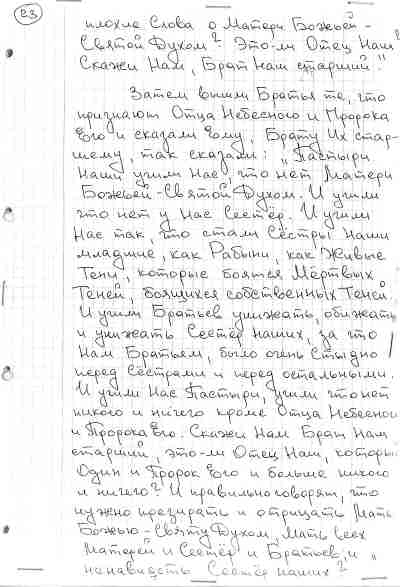 23
плохие Слова о Матери Божьей-
Святой Духом? Это-ли Отец Наш?
Скажи Нам, Брат Наш старший."
Затем вышли Братья те, что
признают Отца Небесного и Пророка
Его и сказали ему, Брату Их стар-
шему, так сказали: „Пастыри
Наши учили Нас, что нет Матери
Божьей-Святой Духом. И учили
что нет у Нас Сестёр. И учили
Нас так, что стали Сёстры Наши
младшие, как Рабыни, как Живые
Тени, которые боятся Мёртвых
Теней, боящихся собственных Теней.
И учили Братьев унижать, обижать
и унижать Сестёр Наших, за что
Нам Братьям, было очень Стыдно
перед Сёстрами и перед остальными.
И учили Нас Пастыри, учили что нет
никого и ничего кроме Отца Небесного
и Пророка Его. Скажи Нам Брат Наш
старший, это-ли Отец Наш, который
Один и Пророк Его и больше никого
и ничего? И правильно говорят, что
нужно презирать и отрицать Мать
Божью-Святу Духом, Мать Всех
Матерей и Сестёр и Братьев, и
ненавидеть Сестёр наших?"